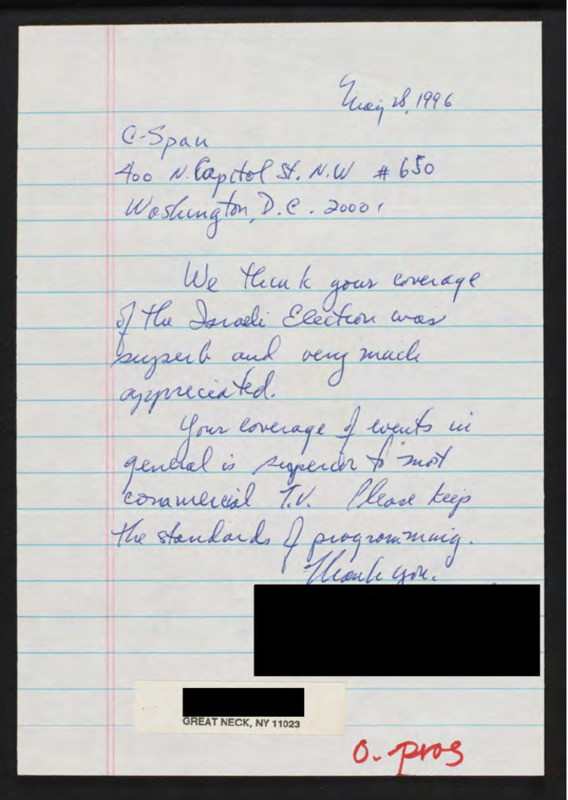 May 28, 1996
C-Span
400 N. Capitol St. N.W # 650
Washington, D.C. 20001
We think your coverage
of the Israeli Election was
superb and very much
appreciated.
Your coverage of events in
general is superior to most
commercial T.V. Please keep
the standards of programming.
Thank you.
GREAT NECK, NY 11023
O. pros